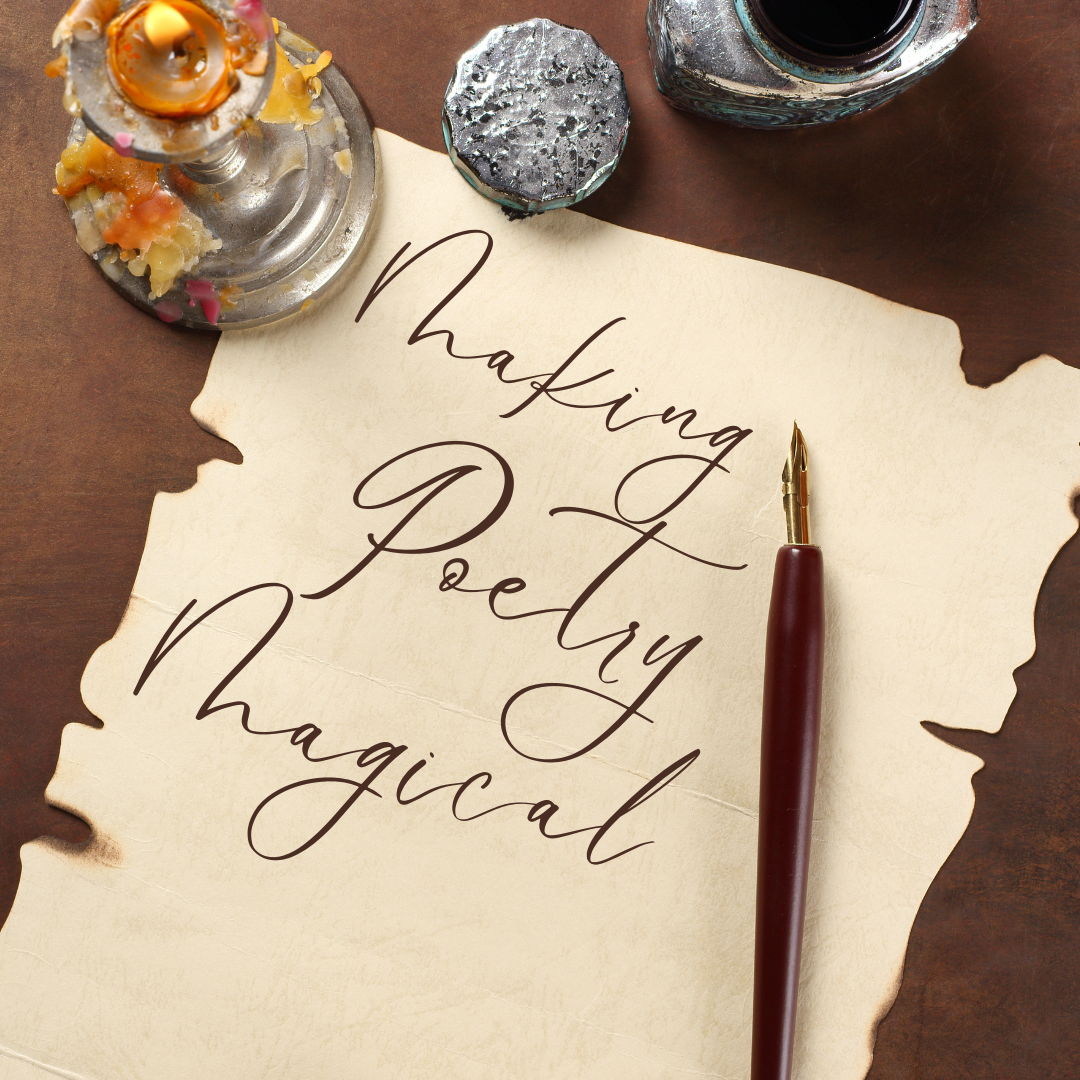 Making
Poetry
Magical